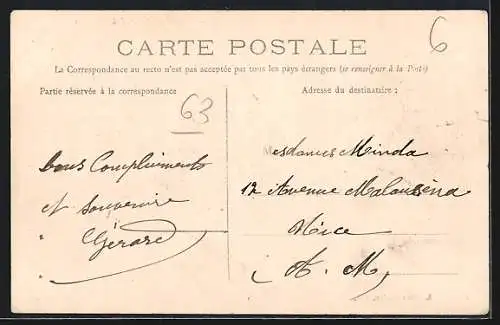 6
CARTE POSTALE
La Correspondance au recto n'est pas acceptée par tous les pays étrangers (se renseigner à la Poste)
Partie réservée à la correspondance
Adresse du destinataire :
63
Bons Compliments
et souvenire
Gérard
Mesdames Minda
12 Avenue Malausséna
Nice
(A. M)